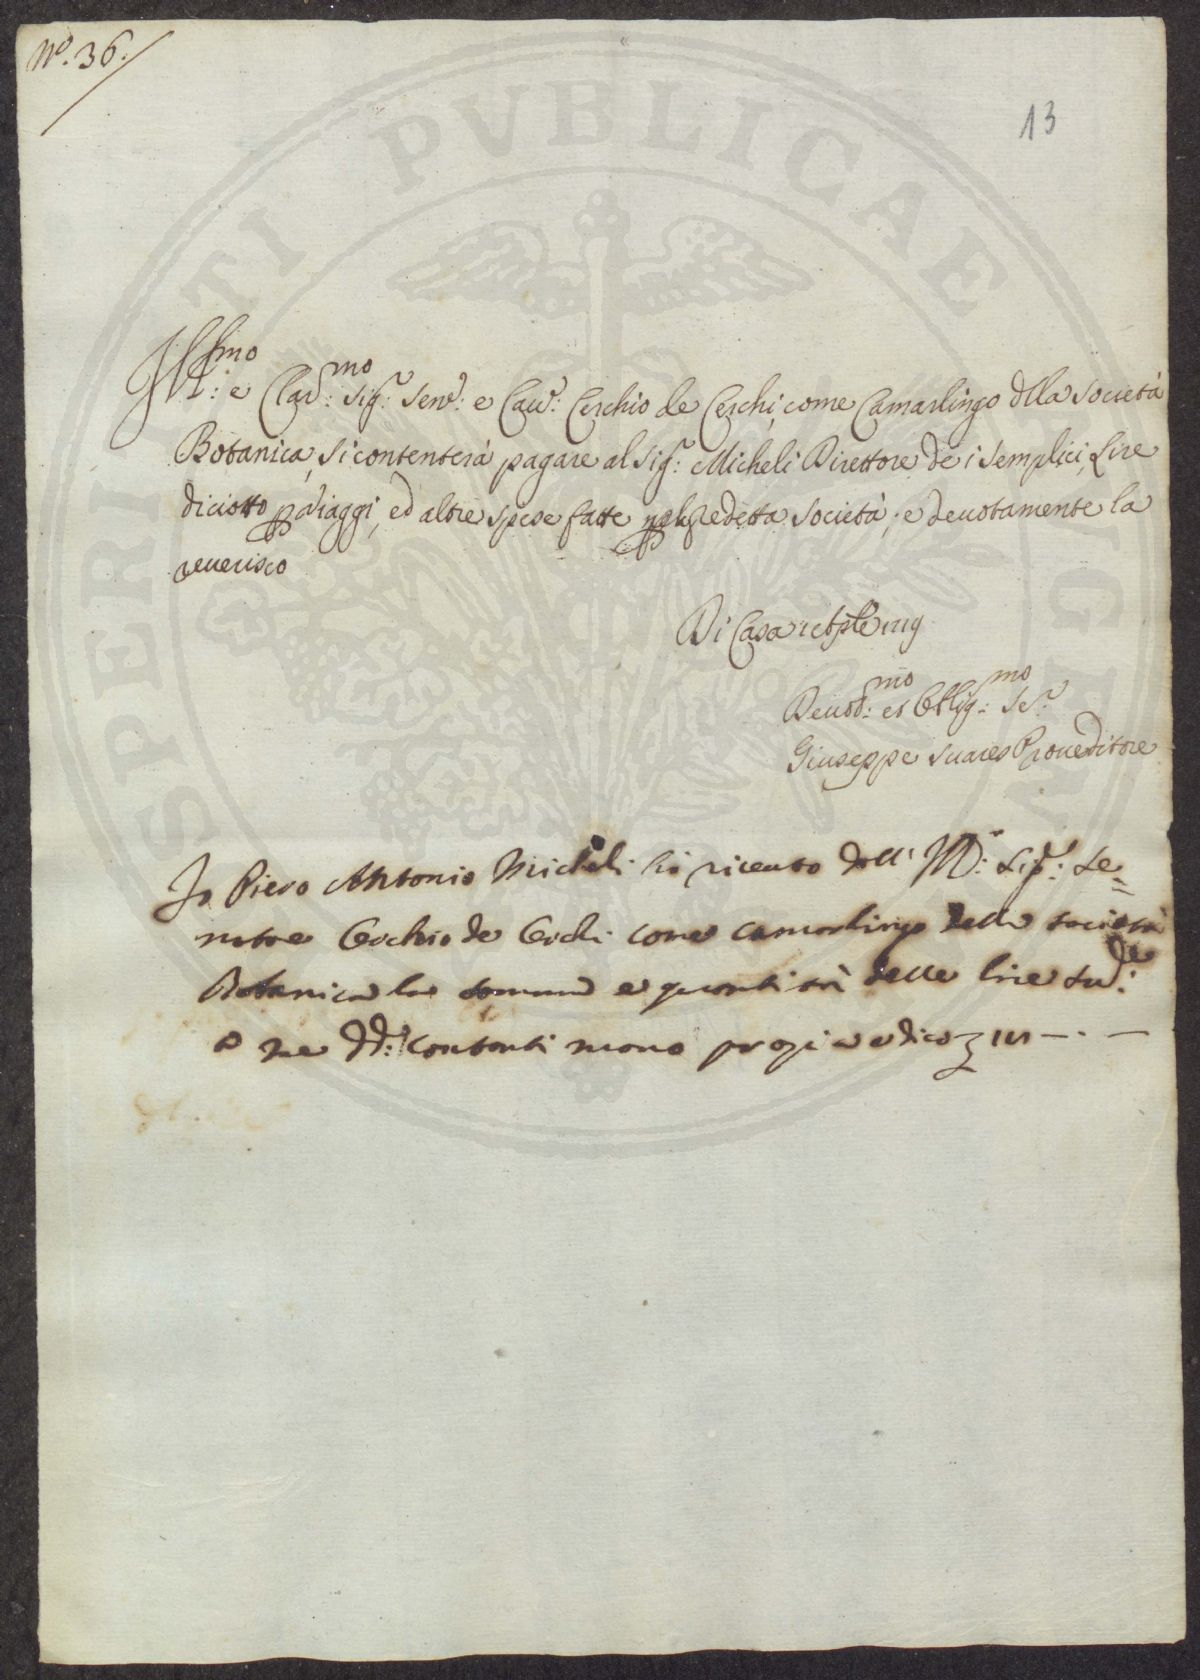 N.º 36.
13
Ill:mo e Clar:mo Sig:r Sen:e e Cav:e Cerchio de Cerchi, come Camarlingo della Società
Botanica, si contenterà pagare al Sig:r Micheli Direttore de i Semplici, Lire
diciotto p viaggi, ed altre spese fatte p la predetta Società; e devotamente la
reverisco
Di Casa
Devot:mo et Oblig:mo Se:r
Giuseppe Suares Proveditore
Io Piero Antonio Micheli hò riceuto dall' Ill:mo Sig:r Se=
natore Cerchio de Cerchi come camarlingo della società
Botanica la somma e quantità delle lire su:de
e ne dd: contanti mano propria e dico